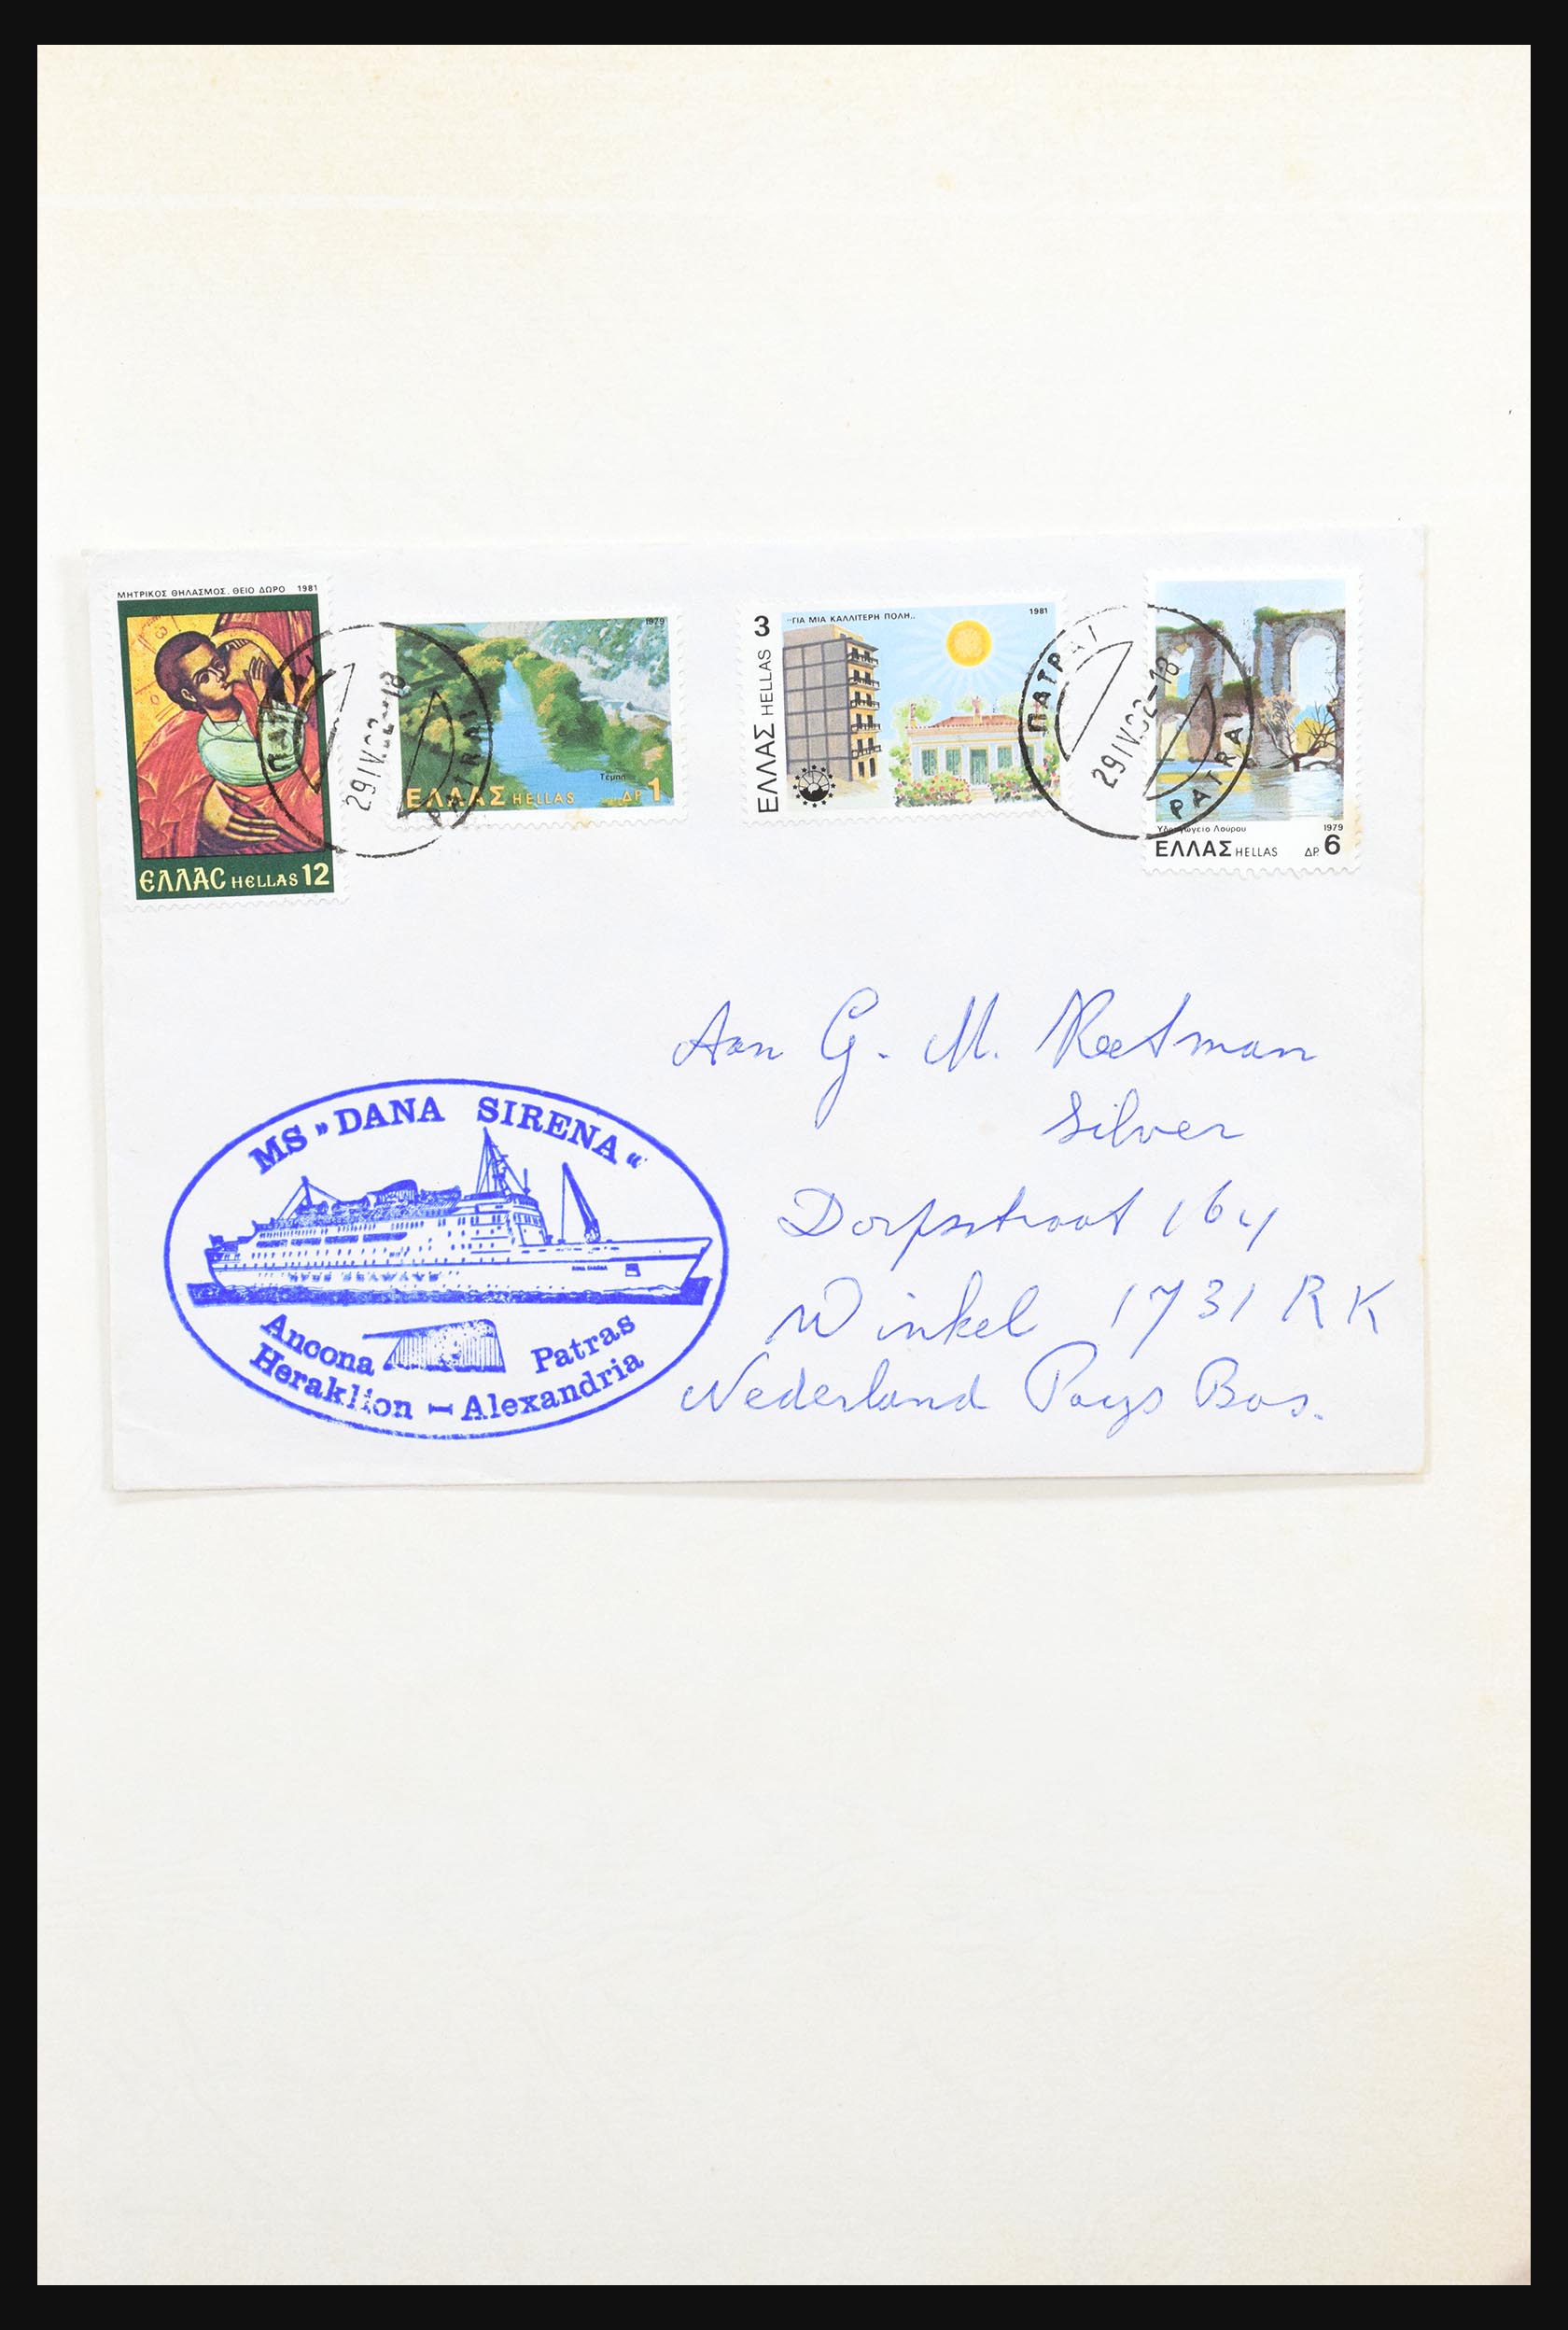 ΜΗΤΡΙΚΟΣ ΘΗΛΑΣΜΟΣ. ΘΕΙΟ ΔΩΡΟ 1981
ΕΛΛΑС HELLAS 12
1979
Τέμπη
ΕΛΛΑΣ HELLAS ΔΡ 1
3
ΕΛΛΑΣ HELLAS
"ΓΙΑ ΜΙΑ ΚΑΛΛΙΤΕΡΗ ΠΟΛΗ..
1981
Υδραγωγείο Λούρου 1979
ΕΛΛΑΣ HELLAS ΔΡ. 6
29IV.82-18
PATRAI
ΠΑΤΡΑΙ
29IV.82-18
PATRAI
Aan G. M. Reetman
Silver
Dorpstraat 164
Winkel 1731 RK
Nederland Pays Bas.
MS »DANA SIRENA«
Ancona Patras
Heraklion - Alexandria